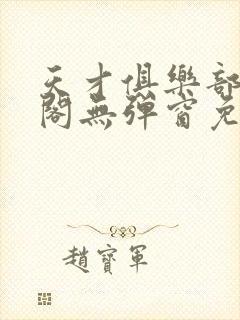 天才俱樂部
閣無彈窗免
趙寶軍